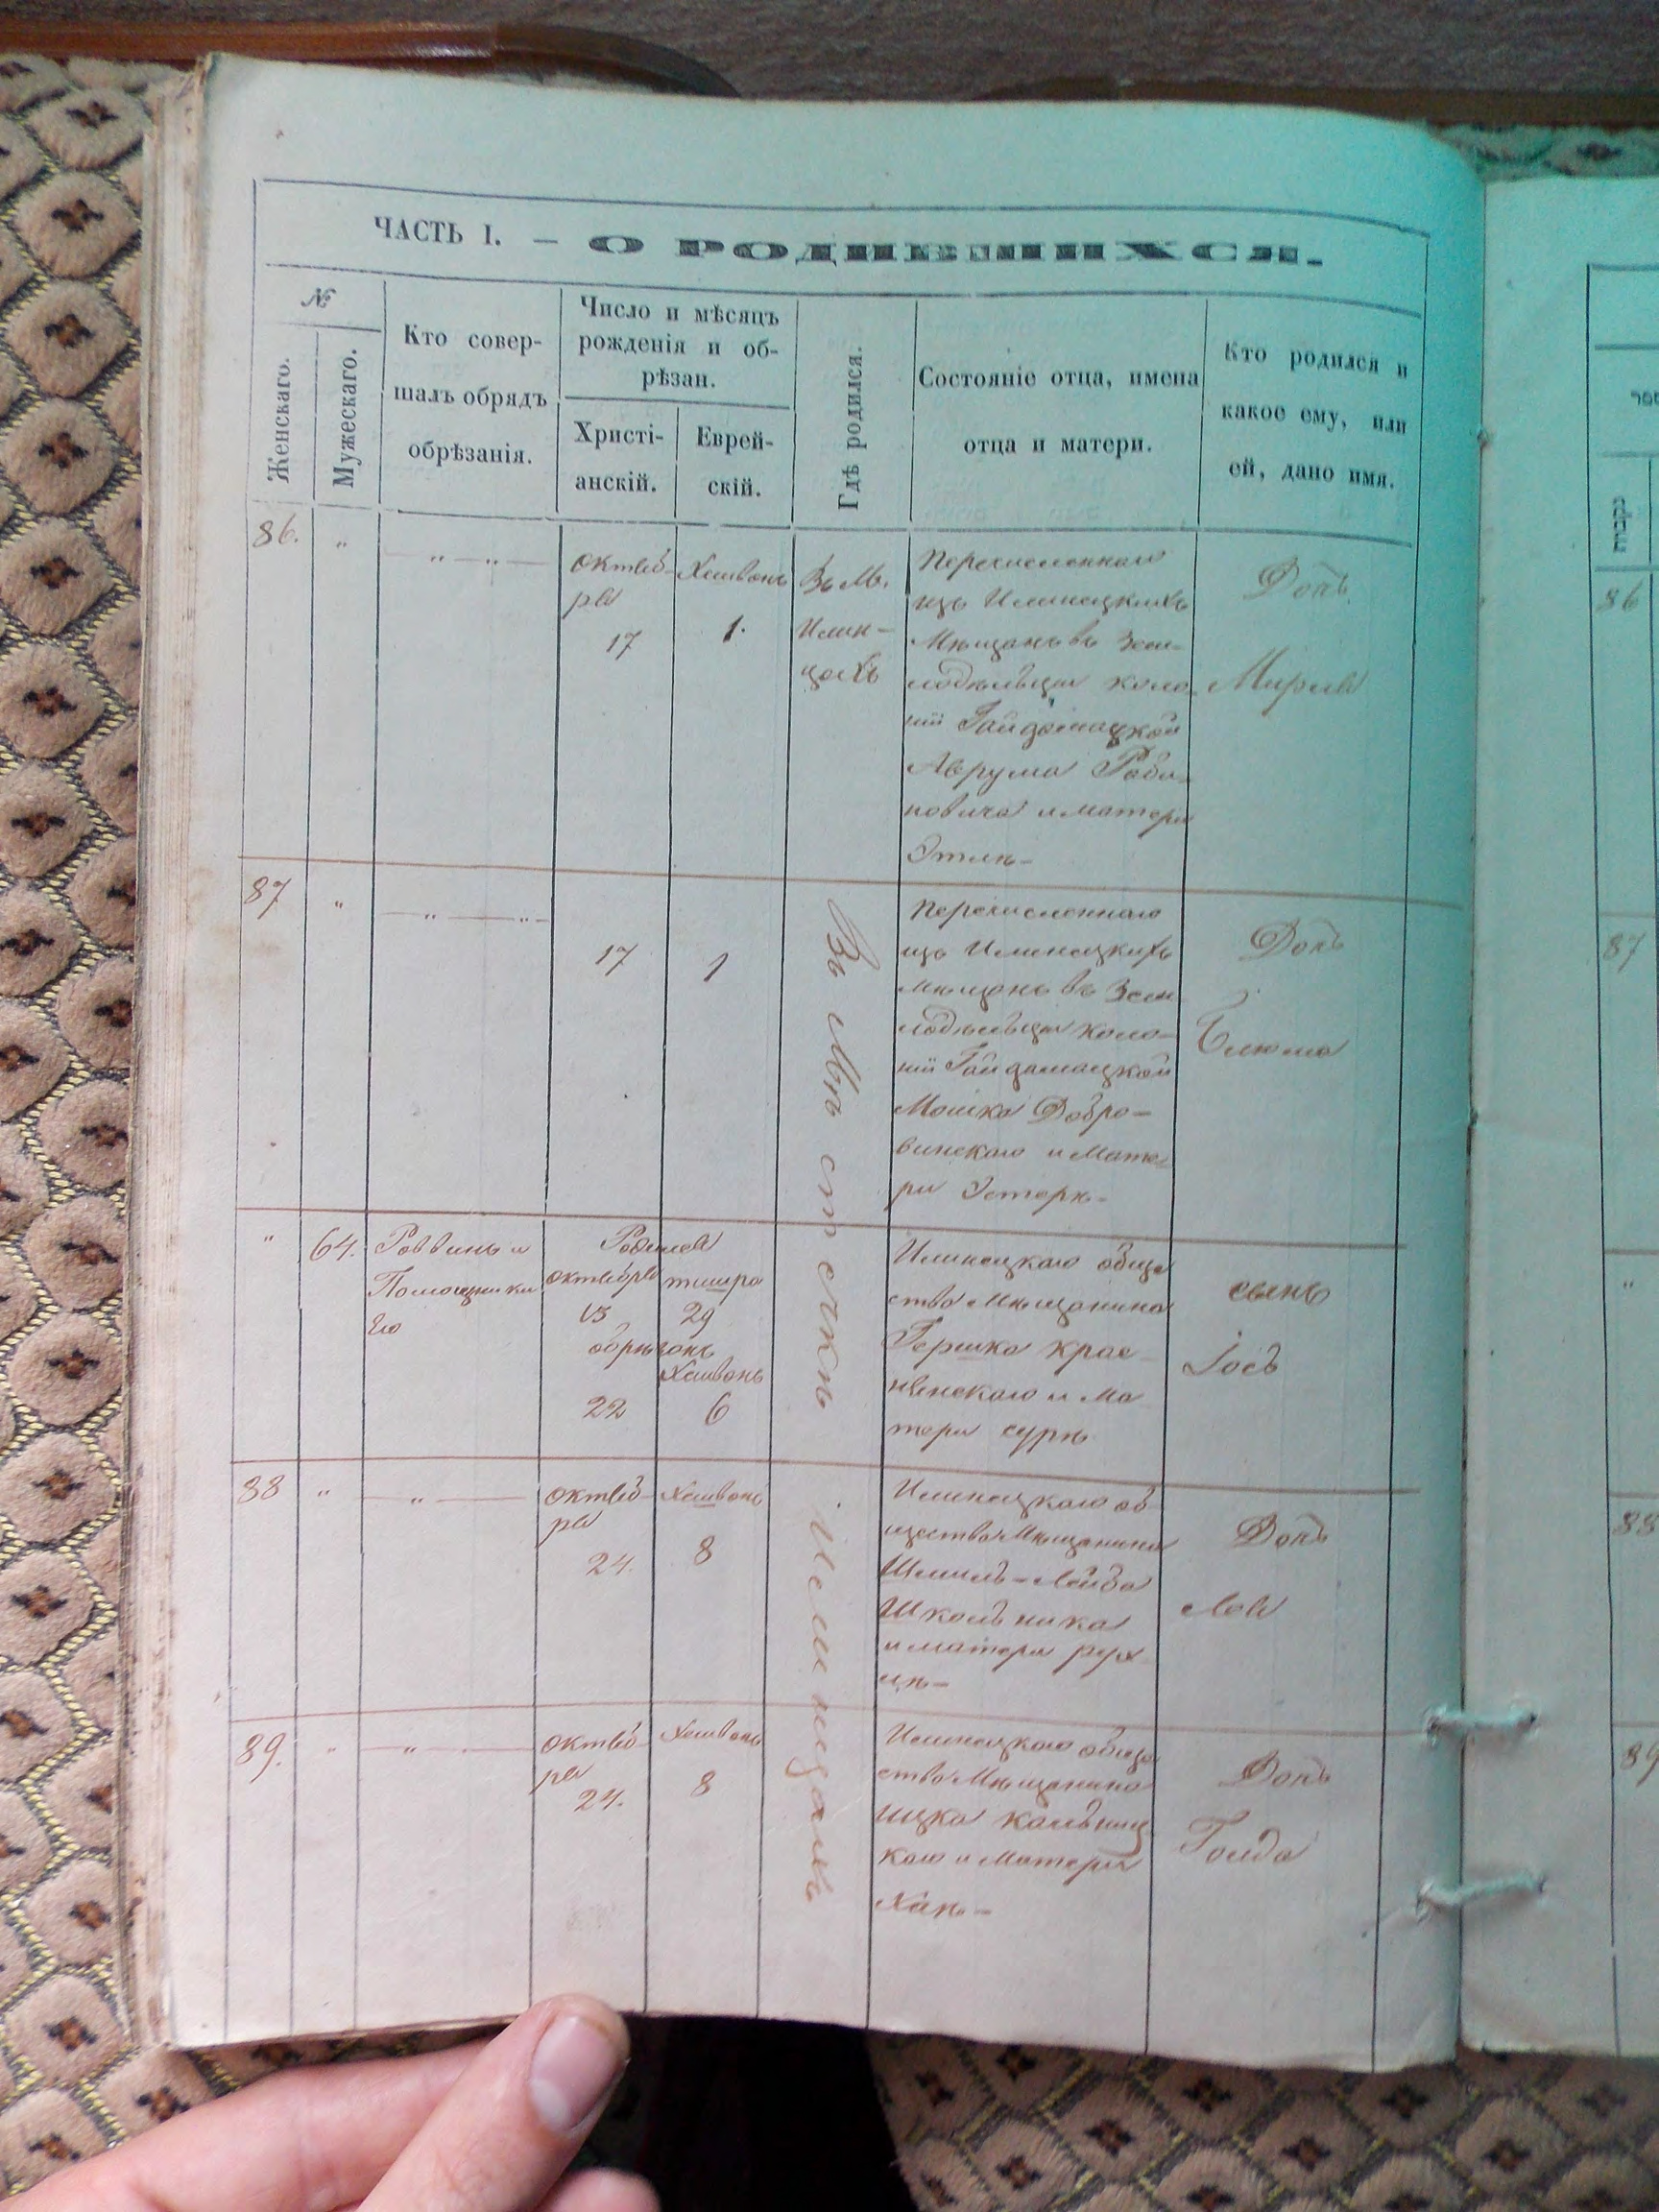 ЧАСТЬ I. — О РОДИВШИХСЯ.
№
Женскаго.
Мужескаго.
Кто совер-
шалъ обрядъ
обрѣзанія.
Число и мѣсяцъ
рожденія и об-
рѣзан.
Христі-
анскій.
Еврей-
скій.
Гдѣ родился.
Состояніе отца, имена
отца и матери.
Кто родился и
какое ему, или
ей, дано имя.
86. " " "
Октяб-
ря
17
Хешвонъ
1.
Въ М.
Илин-
цахъ
Перечисленнаго
изъ Илинецкихъ
Мѣщанъ въ Зем-
лодѣльцы коло-
ніи Гайдамацкой
Аврума Раби-
новича и матери
Этли-
Дочь
Мирля
87 " " "
17
1
Въ мѣстечкѣ Илинцахъ
Перечисленнаго
изъ Илинецкихъ
мѣщанъ въ Зем-
лодѣльцы коло-
ніи Гайдамацкой
Мошка Добро-
винскаго и Мате-
ри Эстеръ-
Дочь
Блюма
" 64.
Раввинъ и
Помощники
Его
Родился
октября тишра
13 29
обрѣзанъ
Хешвонъ
22 6
Илинецкаго обще
ства мѣщанина
Гершка Крас
нянскаго и Ма
тери Суры
сынъ
Іосъ
88 " "
Октяб-
ря
24.
Хешвонъ
8
Илинецкаго об
щества Мѣщанина
Шмиль-Лейба
Школьника
и матери Рух
лѣ-
Дочь
Лея
89. " "
Октяб-
ря
24.
Хешвонъ
8
Илинецкаго обще
ства Мѣщанина
Ицка Кальниц
каго и Матери
Хан-
Дочь
Голда
86
87
"
88
89